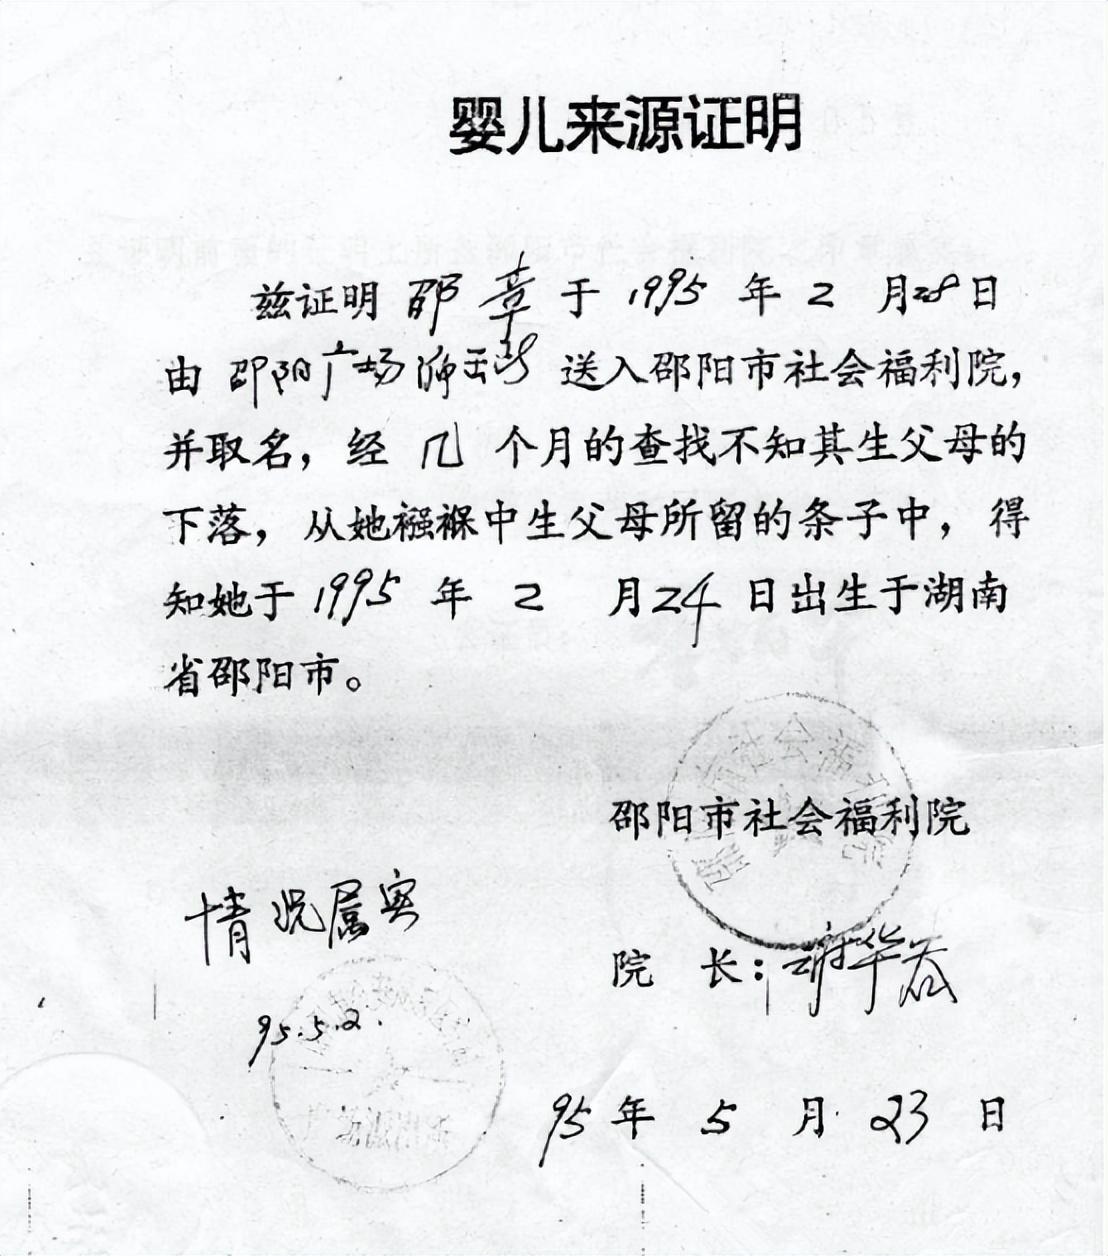 婴儿来源证明
兹证明 邵 章 于 1995 年 2 月28日
由 邵阳广场 送入邵阳市社会福利院,
并取名, 经 几 个月的查找不知其生父母的
下落, 从她襁褓中生父母所留的条子中, 得
知她于 1995 年 2 月24 日出生于湖南
省邵阳市。
邵阳市社会福利院
情况属实
院 长: 华
95.5.2.
95 年 5 月 23 日